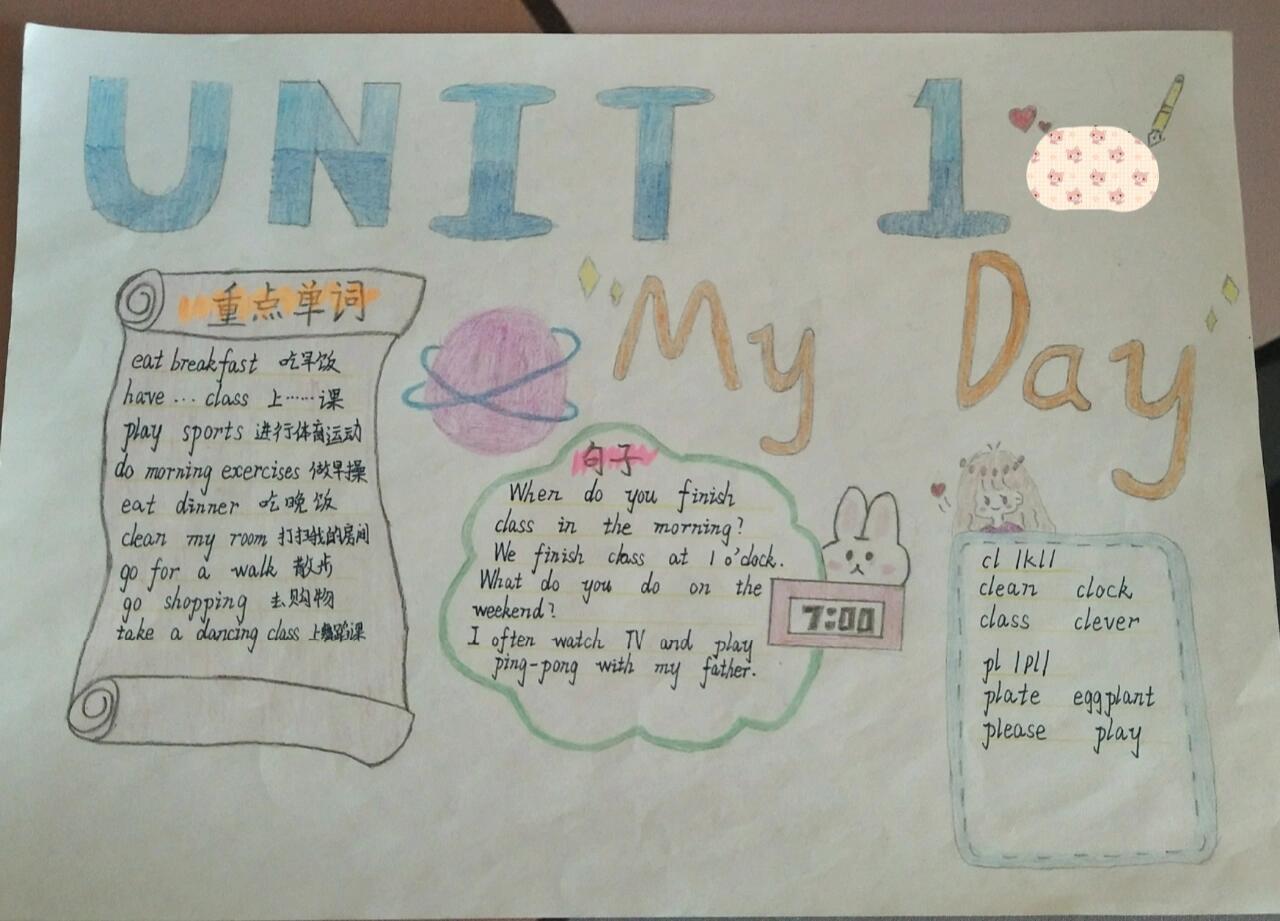 UNIT 1
My Day
重点单词
eat breakfast 吃早饭
have ... class 上……课
play sports 进行体育运动
do morning exercises 做早操
eat dinner 吃晚饭
clean my room 打扫我的房间
go for a walk 散步
go shopping 去购物
take a dancing class 上舞蹈课
句子
When do you finish
class in the morning?
We finish class at 1 o'clock.
What do you do on the
weekend?
I often watch TV and play
ping-pong with my father.
7:00
cl |kl|
clean clock
class clever
pl |pl|
plate eggplant
please play